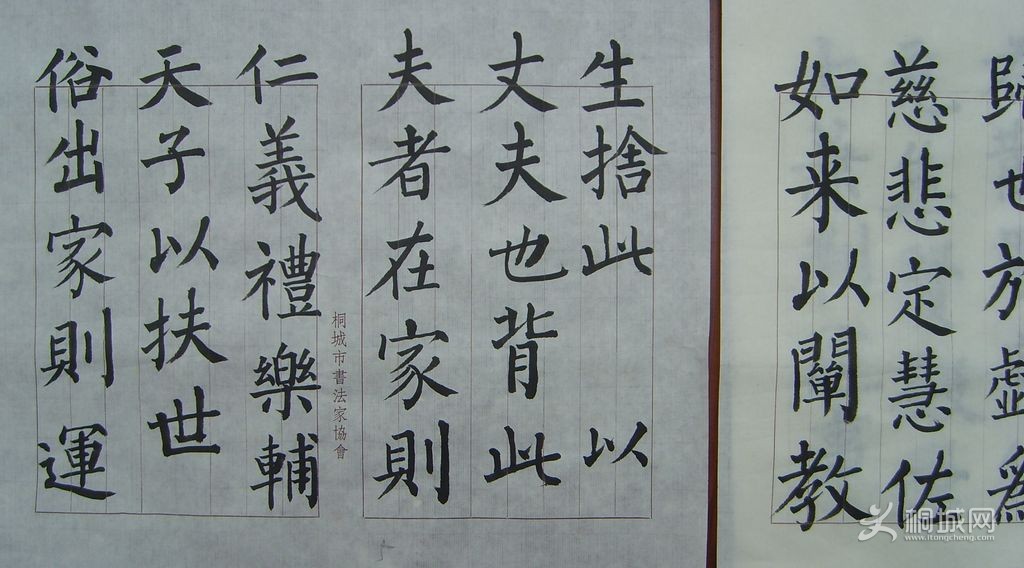 歸也方虛爲
慈悲定慧佐
如来以闡教
生捨此以
丈夫也背此
夫者在家則
仁義禮樂輔
天子以扶世
俗出家則運
桐城市書法家協會
桐城网
www.itongcheng.com